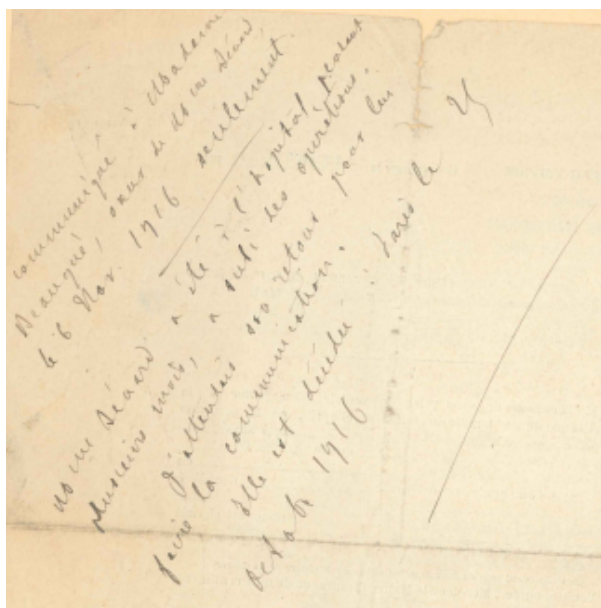 communiqué à Madame
Beauqué, sœur de Mme Séard
le 6 Nov. 1916 seulement
Mme Séard a été à l'hopital durant
plusieurs mois, a subi des opérations.
J'attendais son retour pour lui
faire la communication.
Elle est décédée à Paris le 25
Octobre 1916